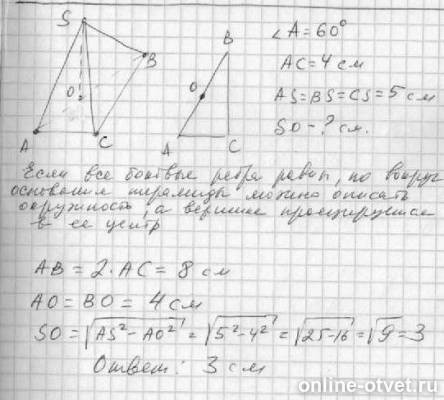 S
B
O
A
C
B
O
A
C
∠A = 60°
AC = 4 см
AS = BS = CS = 5 см
SO - ? см.
Если все боковые ребра равны, то вокруг
основания пирамиды можно описать
окружность, а вершина проецируется
в ее центр
AB = 2 · AC = 8 см
AO = BO = 4 см
SO = √AS² - AO² = √5² - 4² = √25 - 16 = √9 = 3
Ответ: 3 см
online-otvet.ru